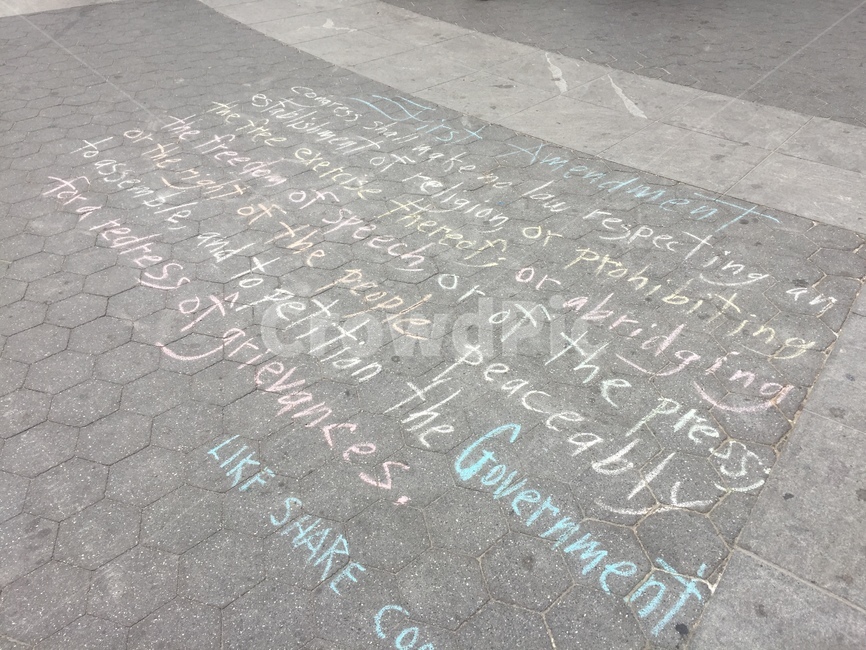 First Amendment
congress shall make no law respecting an
establishment of religion, or prohibiting
the free exercise thereof; or abridging
the freedom of speech, or of the press;
or the right of the people peaceably
to assemble, and to petition the Government
for a redress of grievances.
LIKE SHARE CO
CrowdPic